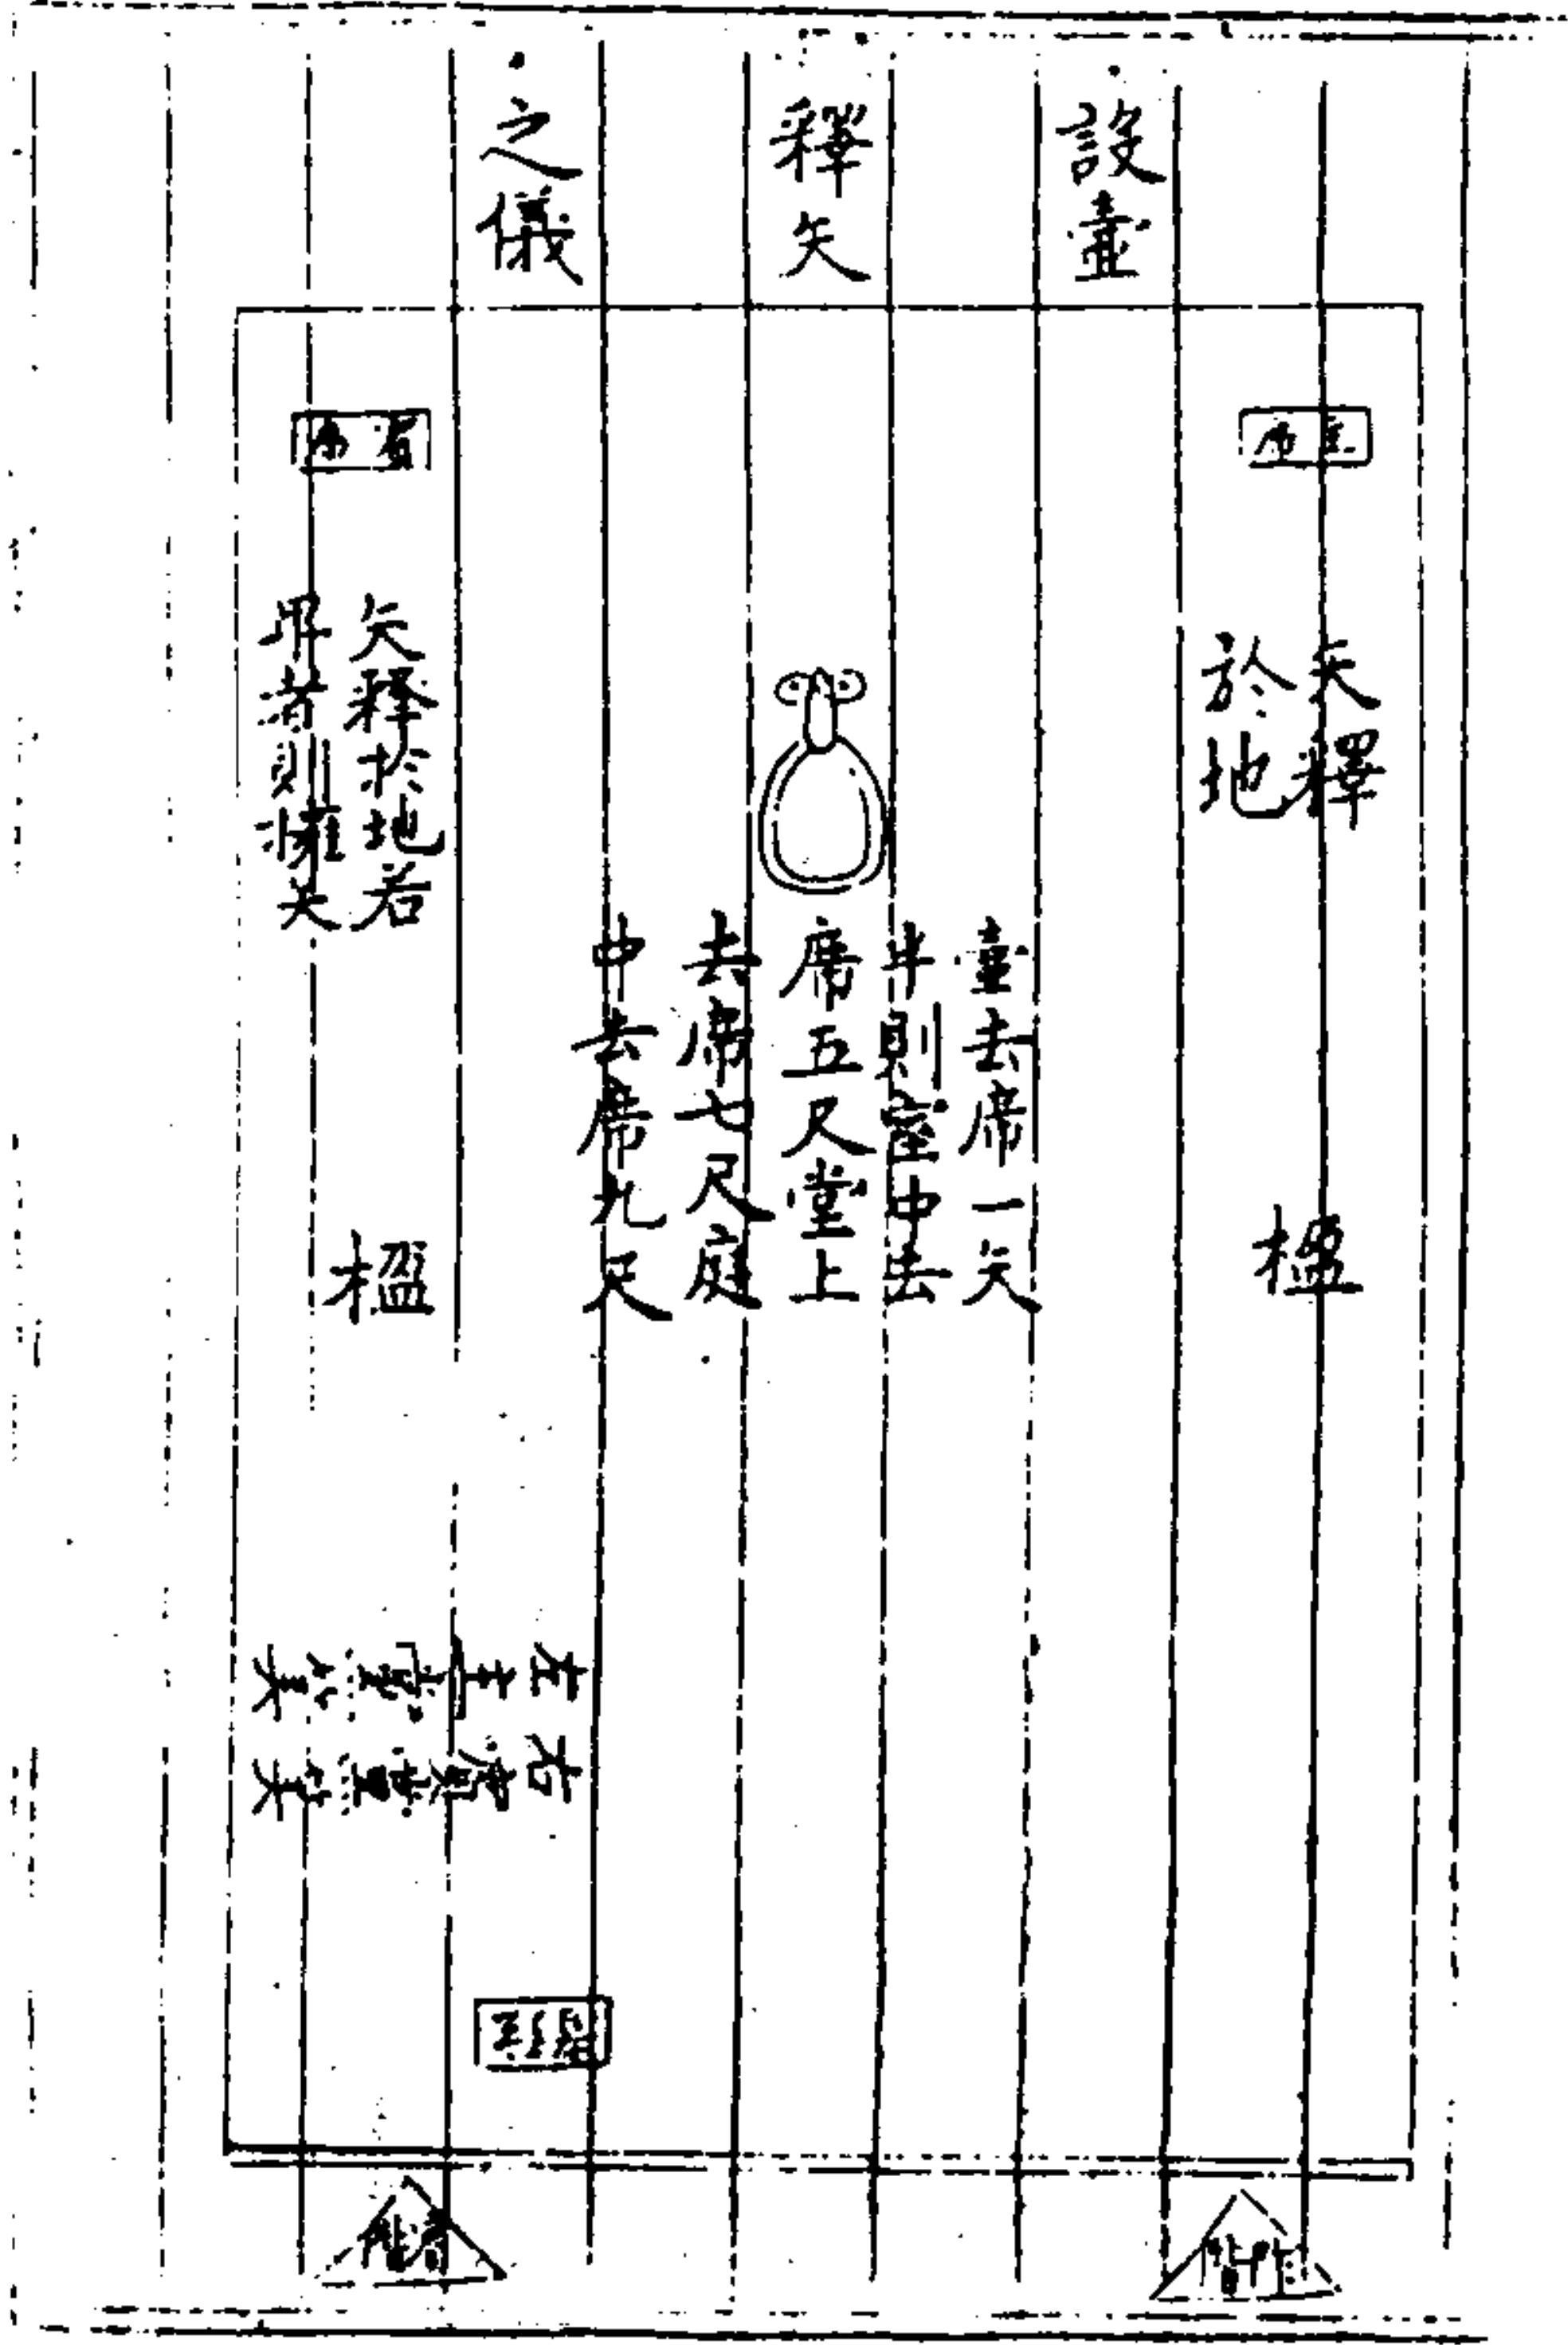 設壺
釋矢
之儀
主席
矢釋
於地
楹
壺去席一矢
半則室中去
席五尺堂上
去席七尺庭
中去席九尺
賓席
矢釋於地若
卑者則擁矢
楹
左
右
阼階